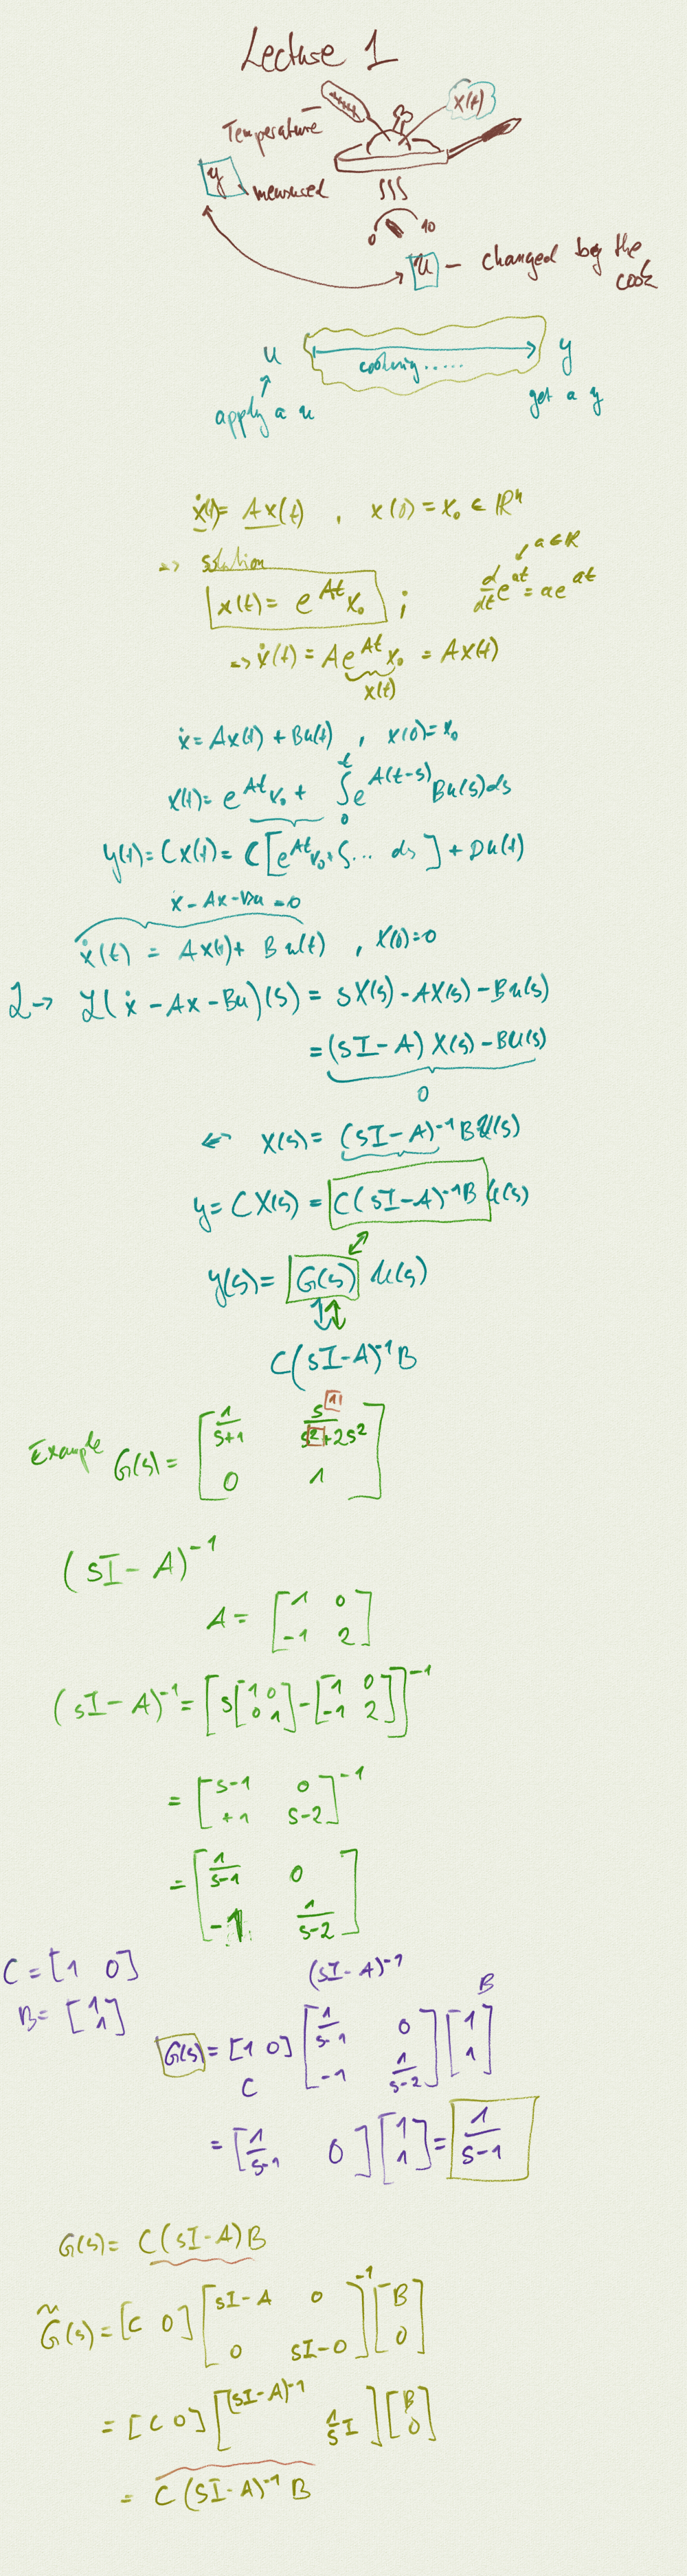 Lecture 1
x(t)
Temperature
y measured
0 10
u - changed by the
cook
u cooking ..... y
apply a u get a y
ẋ(t) = Ax(t) , x(0) = x₀ ∈ ℝⁿ
=> solution a ∈ ℝ
x(t) = e^{At} x₀ ; d/dt e^{at} = a e^{at}
=> ẋ(t) = A e^{At} x₀ = Ax(t)
x(t)
ẋ = Ax(t) + Bu(t) , x(0) = x₀
x(t) = e^{At} x₀ + ∫₀ᵗ e^{A(t-s)} Bu(s) ds
y(t) = Cx(t) = C[e^{At} x₀ + ∫... ds] + Du(t)
ẋ - Ax - Bu = 0
ẋ(t) = Ax(t) + Bu(t) , x(0) = 0
ℒ → ℒ(ẋ - Ax - Bu)(s) = sX(s) - AX(s) - Bu(s)
= (sI - A) X(s) - BU(s)
0
X(s) = (sI - A)⁻¹ B U(s)
y = CX(s) = C(sI - A)⁻¹B U(s)
y(s) = G(s) U(s)
C(sI - A)⁻¹B
Example G(s) = [1/(s+1) s^1/(s^2+2s^2)
0 1]
(sI - A)⁻¹
A = [1 0
-1 2]
(sI - A)⁻¹ = [s[1 0
0 1] - [1 0
-1 2]]⁻¹
= [s-1 0
+1 s-2]⁻¹
= [1/(s-1) 0
-1 1/(s-2)]
C = [1 0] (sI - A)⁻¹
B = [1
1] B
G(s) = [1 0] [1/(s-1) 0
-1 1/(s-2)] [1
1]
C
= [1/(s-1) 0] [1
1] = 1/(s-1)
G(s) = C(sI - A)B
G̃(s) = [C 0] [sI - A 0
0 sI - 0]⁻¹ [B
0]
= [C 0] [(sI - A)⁻¹
1/s I] [B
0]
= C(sI - A)⁻¹ B